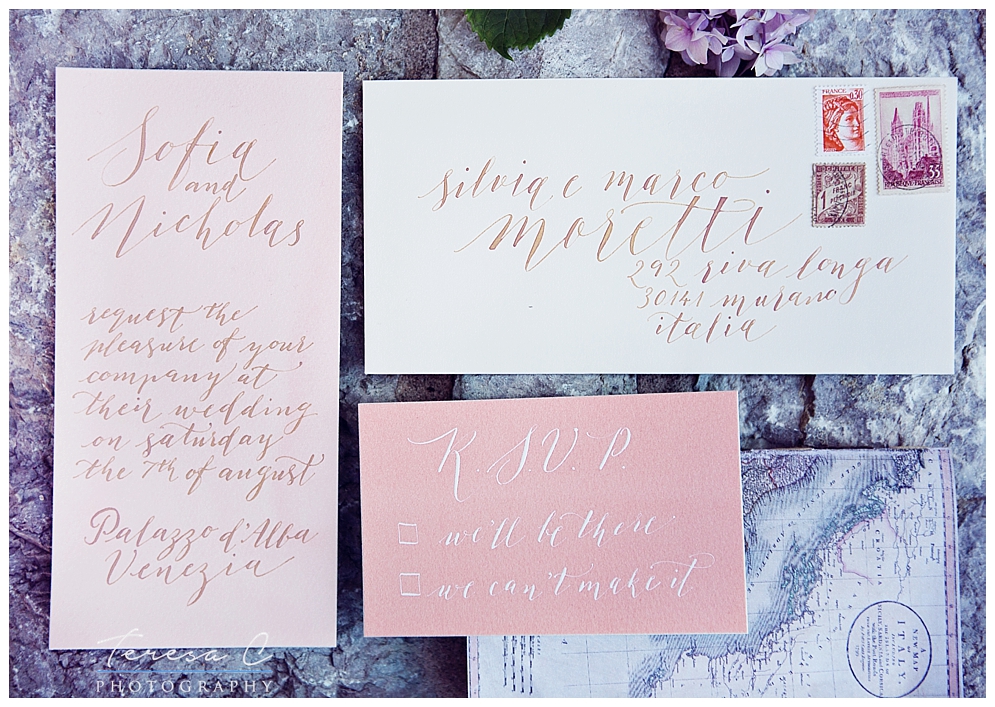 Sofia
and
Nicholas
request the
pleasure of your
company at
their wedding
on saturday
the 7th of august
Palazzo d'Alba
Venezia
silvia e marco
moretti
292 riva longa
30141 murano
italia
FRANCE
0,30
35
1
FRANC
R.S.V.P.
we'll be there
we can't make it
A
NEW MAP
OF
ITALY,
Teresa C
PHOTOGRAPHY